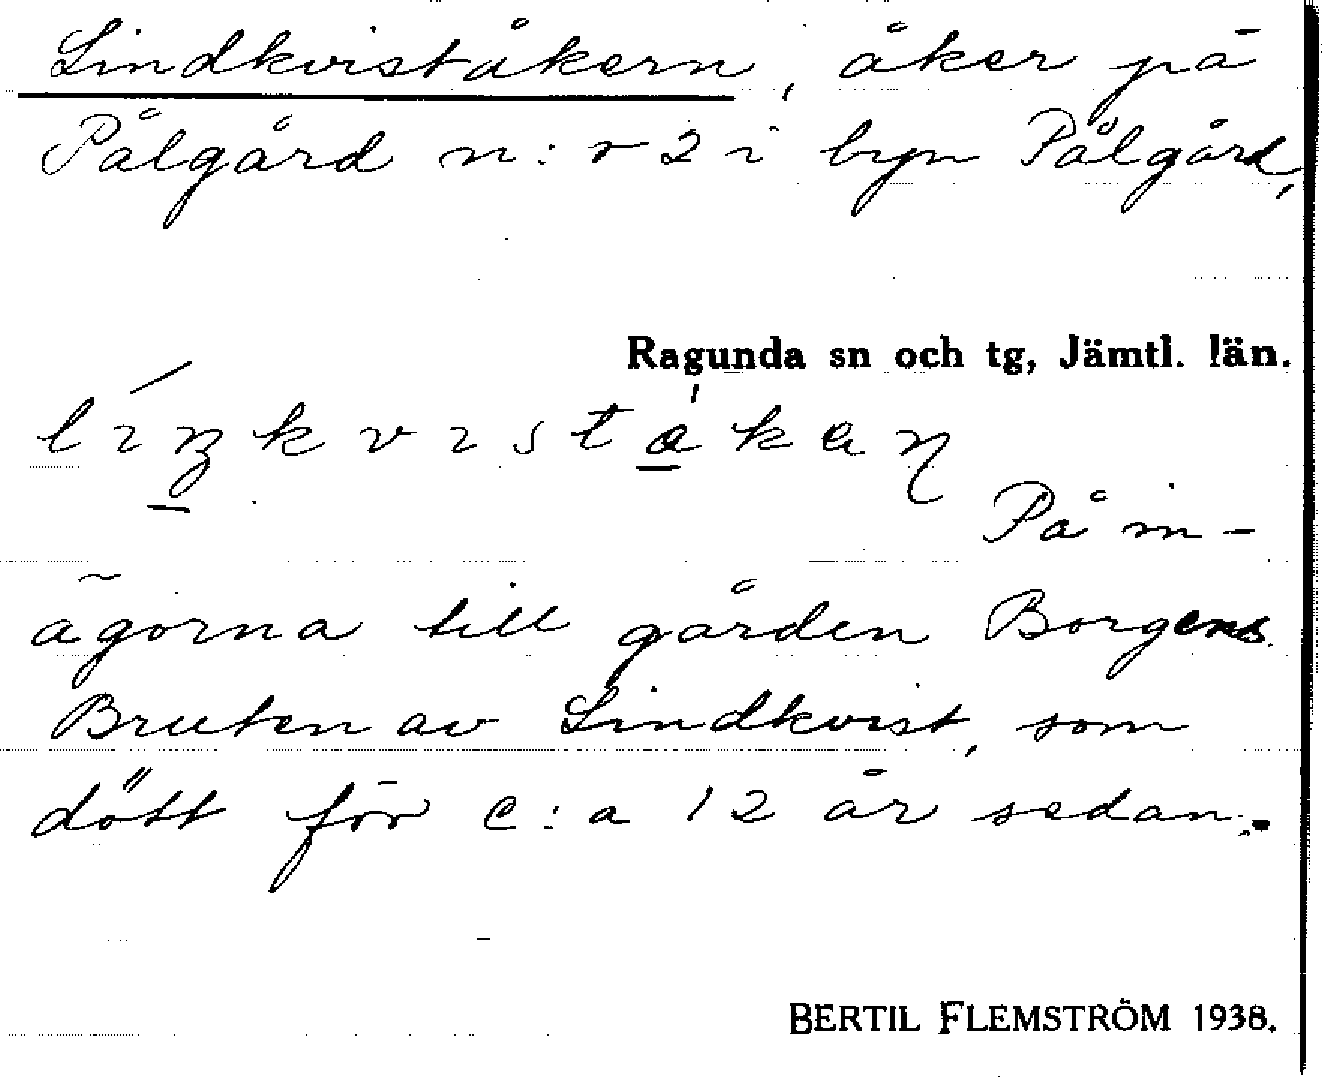 Lindkviståkern, åker på
Pålgård n:r 2 i byn Pålgård,
Ragunda sn och tg, Jämtl. län.
På in-
ägorna till gården Borgens.
Bruten av Lindkvist, som
dött för c:a 12 år sedan.
BERTIL FLEMSTRÖM 1938.